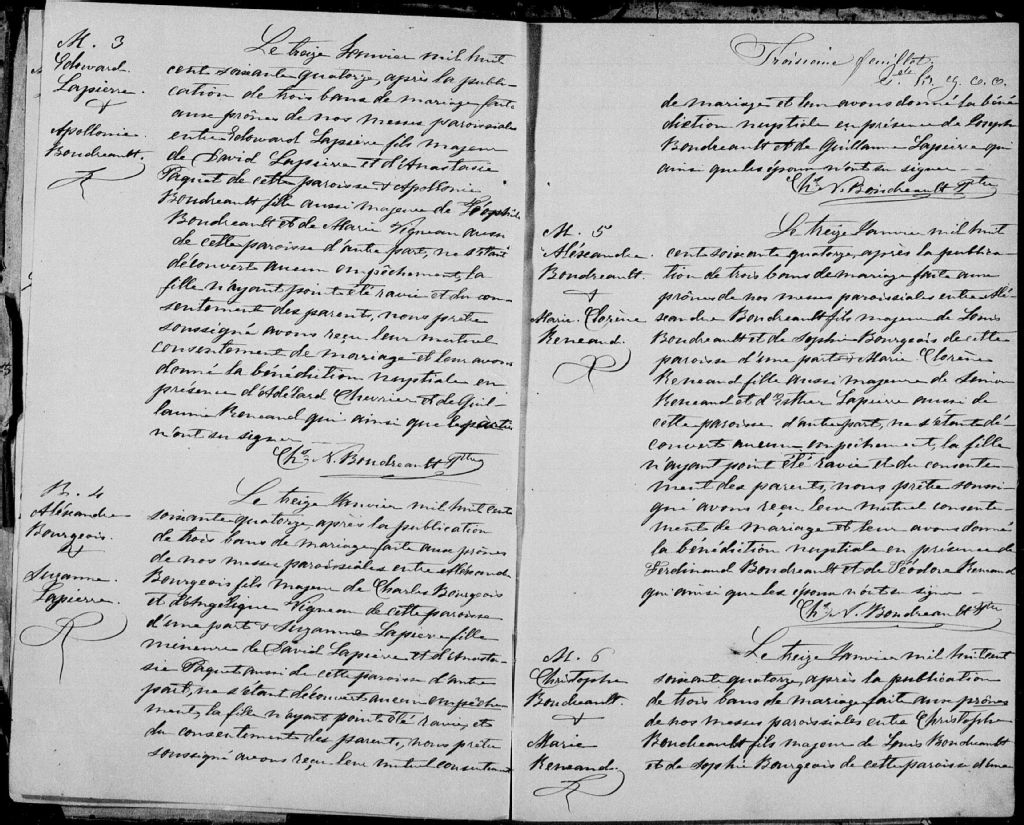 M. 3
Edouard
Lapierre
&
Apollonie
Boudreault.
Le treize Janvier mil huit
cent soixante quatorze, après la publi-
cation de trois bans de mariage faite
aux prônes de nos messes paroissiales
entre Edouard Lapierre fils majeur
de David Lapierre et d'Anastasie
Paquet de cette paroisse & Apollonie
Boudreault fille aussi majeure de Théophile
Boudreault et de Marie Vigneau aussi
de cette paroisse d'autre part, ne s'étant
découverte aucun empêchement, la
fille n'ayant point été ravie et du con-
sentement des parents, nous prêtre
soussigné avons reçu leur mutuel
consentement de mariage et leur avons
donné la bénédiction nuptiale en
présence d'Adélard Chevrier et de Guil-
laume Reneaud qui ainsi que les
n'ont su signer
Chs. N. Boudreault Ptre
M. 4
Aléxandre
Bourgeois.
&
Suzanne
Lapierre.
Le treize Janvier mil huit cent
soixante quatorze, après la publication
de trois bans de mariage faite aux prônes
de nos messes paroissiales entre Aléxandre
Bourgeois fils majeur de Charles Bourgeois
et d'Angélique Vigneau de cette paroisse
d'une part & Suzanne Lapierre fille
mineure de David Lapierre et d'Anasta-
sie Paquet aussi de cette paroisse d'autre
part, ne s'étant découvert aucun empêche
ment, la fille n'ayant point été ravie, et
du consentement des parent, nous prêtre
soussigné avons reçu leur mutuel consentement
Troisième feuillet.
de mariage et leur avons donné la béné
diction nuptiale en présence de Joseph
Boudreault et de Guillaume Lapierre qui
ainsi que les époux n'ont su signer -
Chs. N. Boudreault Ptre
M. 5
Aléxandre
Boudreault.
&
Marie Clorène
Reneaud.
Le treize Janvier mil huit
cent soixante quatorze, après la publica-
tion de trois bans de mariage faite aux
prônes de nos messes paroissiales entre Alé-
xandre Boudreault fils majeur de Louis
Boudreault et de Sophie Bourgeois de cette
paroisse d'une part & Marie Clorène
Reneaud fille aussi majeure de Simon
Reneaud et d'Esther Lapierre aussi de
cette paroisse d'autre part, ne s'étant dé-
couverte aucun empêchement, la fille
n'ayant point été ravie et du consente-
ment des parents, nous prêtre soussi-
gné avons reçu leur mutuel consente-
ment de mariage et leur avons donné
la bénédiction nuptiale en présence de
Ferdinand Boudreault et de Téodore Reneaud
qui ainsi que les époux n'ont su signer -
Chs. N. Boudreault Ptre
M. 6
Christophe
Boudreault.
&
Marie
Reneaud.
Le treize Janvier mil huit cent
soixante quatorze, après la publication
de trois bans de mariage faite aux prônes
de nos messes paroissiales entre Christophe
Boudreault fils majeur de Louis Boudreault
et de Sophie Bourgeois de cette paroisse d'une